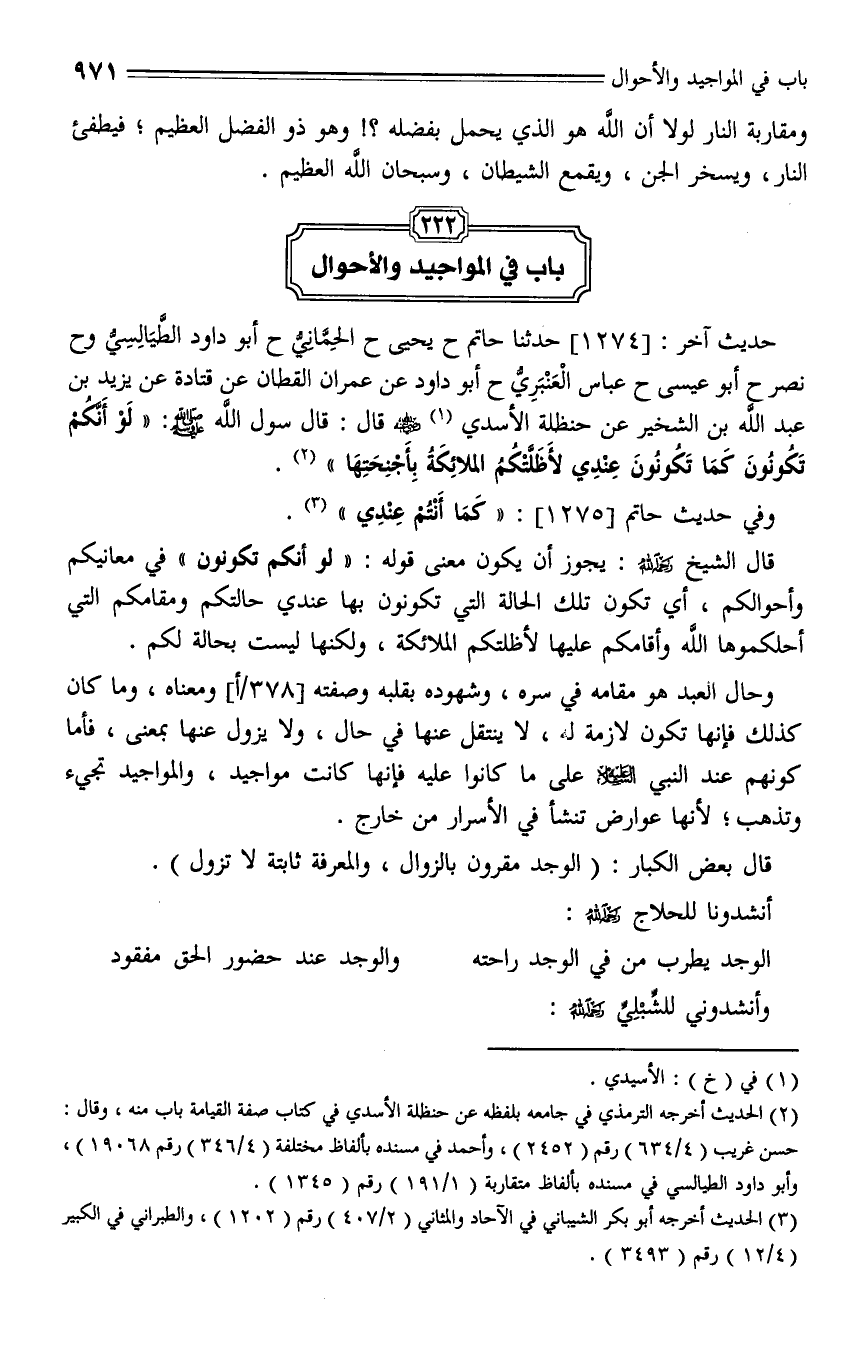 باب في المواجيد والأحوال ٩٧١
ومقاربة النار لولا أن اللَّه هو الذي يحمل بفضله ؟! وهو ذو الفضل العظيم ؛ فيطفئ
النار ، ويسخر الجن ، ويقمع الشيطان ، وسبحان اللَّه العظيم .
٢٢٢
باب في المواجيد والأحوال
حديث آخر : [١٢٧٤] حدثنا حاتم ح يحيى ح الحِمَّانِيُّ ح أبو داود الطَّيَالِسِيُّ وح
نصر ح أبو عيسى ح عباس الْعَنْبَرِيُّ ح أبو داود عن عمران القطان عن قتادة عن يزيد بن
عبد اللَّه بن الشخير عن حنظلة الأسدي (١) رضي الله عنه قال : قال سول اللَّه ﷺ : « لَوْ أَنَّكُمْ
تَكُونُونَ كَمَا تَكُونُونَ عِنْدِي لأَظَلَّتْكُمُ الملائِكَةُ بِأَجْنِحَتِهَا » (٢) .
وفي حديث حاتم [١٢٧٥] : « كَمَا أَنْتُمْ عِنْدِي » (٣) .
قال الشيخ رحمه الله : يجوز أن يكون معنى قوله : « لو أنكم تكونون » في معانيكم
وأحوالكم ، أي تكون تلك الحالة التي تكونون بها عندي حالتكم ومقامكم التي
أحلكموها اللَّه وأقامكم عليها لأظلتكم الملائكة ، ولكنها ليست بحالة لكم .
وحال العبد هو مقامه في سره ، وشهوده بقلبه وصفته [٣٧٨/أ] ومعناه ، وما كان
كذلك فإنها تكون لازمة له ، لا ينتقل عنها في حال ، ولا يزول عنها بمعنى ، فأما
كونهم عند النبي عليه السلام على ما كانوا عليه فإنها كانت مواجيد ، والمواجيد تجيء
وتذهب ؛ لأنها عوارض تنشأ في الأسرار من خارج .
قال بعض الكبار : ( الوجد مقرون بالزوال ، والمعرفة ثابتة لا تزول ) .
أنشدونا للحلاج رحمه الله :
الوجد يطرب من في الوجد راحته والوجد عند حضور الحق مفقود
وأنشدوني للشِّبْلِيِّ رحمه الله :
(١) في ( خ ) : الأسيدي .
(٢) الحديث أخرجه الترمذي في جامعه بلفظه عن حنظلة الأسدي في كتاب صفة القيامة باب منه ، وقال :
حسن غريب ( ٦٣٤/٤ ) رقم ( ٢٤٥٢ ) ، وأحمد في مسنده بألفاظ مختلفة ( ٣٤٦/٤ ) رقم ١٩٠٦٨ ) ،
وأبو داود الطيالسي في مسنده بألفاظ متقاربة ( ١٩١/١ ) رقم ( ١٣٤٥ ) .
(٣) الحديث أخرجه أبو بكر الشيباني في الآحاد والمثاني ( ٤٠٧/٢ ) رقم ( ١٢٠٢ ) ، والطبراني في الكبير
( ١٢/٤ ) رقم ( ٣٤٩٣ ) .